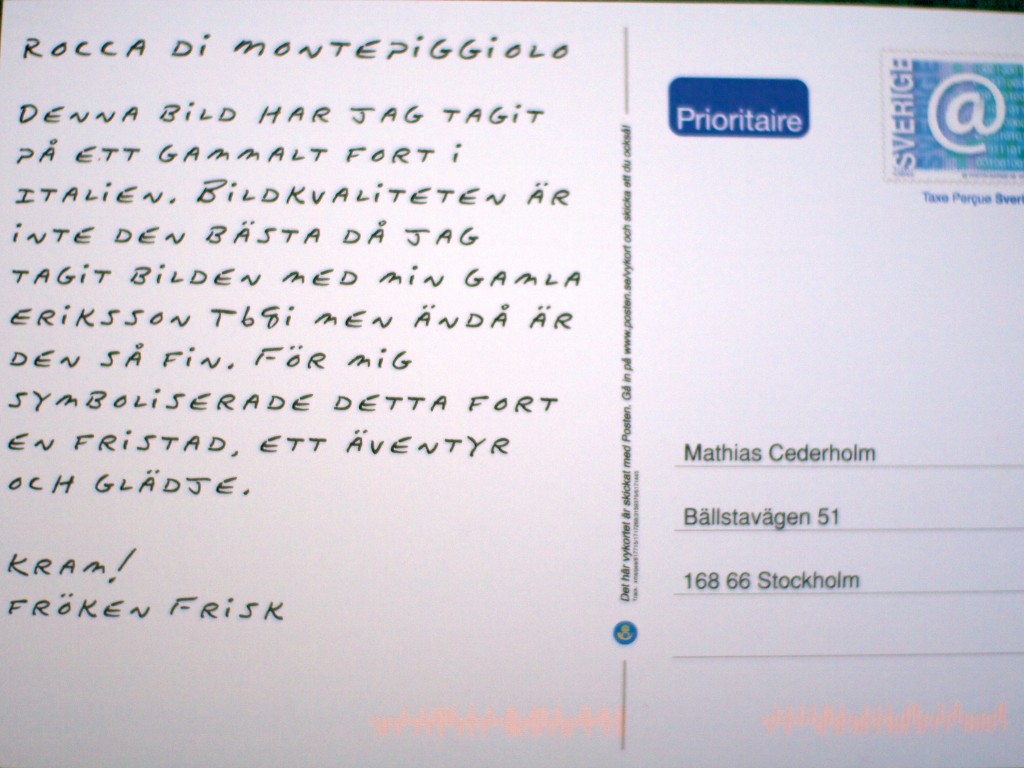 ROCCA DI MONTEPIGGIOLO
DENNA BILD HAR JAG TAGIT
PÅ ETT GAMMALT FORT I
ITALIEN. BILDKVALITETEN ÄR
INTE DEN BÄSTA DÅ JAG
TAGIT BILDEN MED MIN GAMLA
ERIKSSON T68i MEN ÄNDÅ ÄR
DEN SÅ FIN. FÖR MIG
SYMBOLISERADE DETTA FORT
EN FRISTAD, ETT ÄVENTYR
OCH GLÄDJE.
KRAM!
FRÖKEN FRISK
Det här vykortet är skickat med Posten. Gå in på www.posten.se/vykort och skicka ett du också!
Prioritaire
SVERIGE
@
Taxe Perçue Sveri
Mathias Cederholm
Bällstavägen 51
168 66 Stockholm